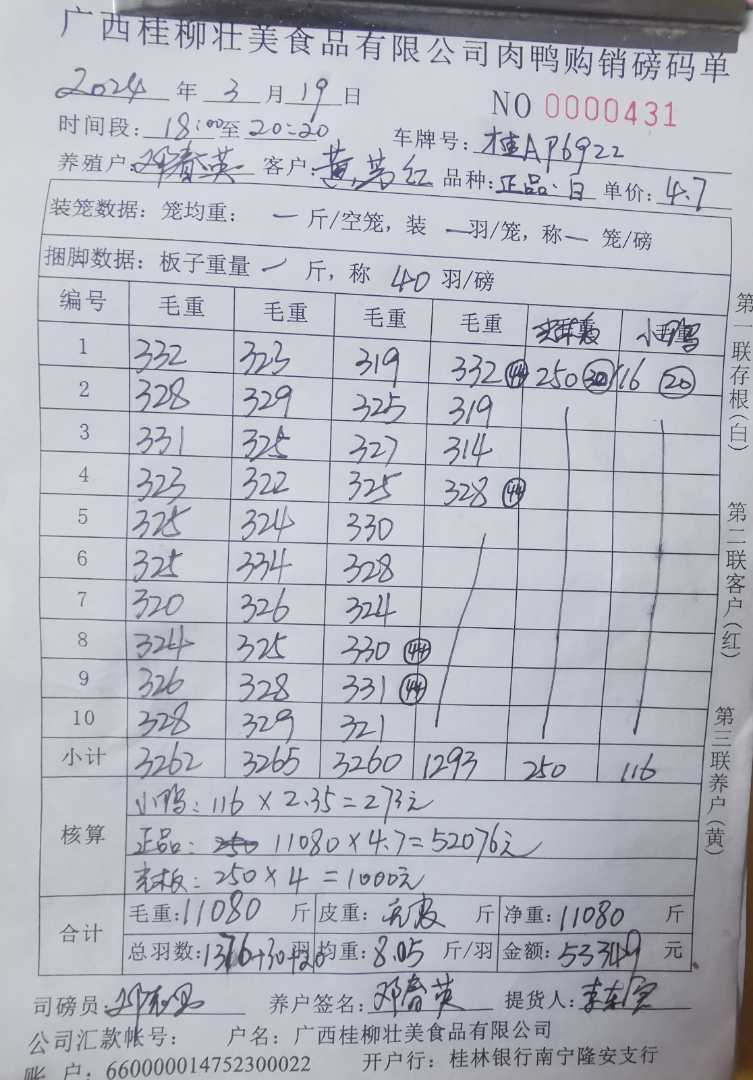 广西桂柳壮美食品有限公司肉鸭购销磅码单
2024年 3月19日 NO 0000431
时间段: 18:00至20:20 车牌号: 桂AP6922
养殖户 邓春英 客户: 黄 红 品种: 正品·白 单价: 4.7
装笼数据: 笼均重: 一 斤/空笼, 装 一羽/笼, 称一 笼/磅
捆脚数据: 板子重量 一 斤, 称 40 羽/磅
编号 毛重 毛重 毛重 毛重 小鸭
1 332 323 319 332 44 250 30 116 20
2 328 329 325 319
3 331 325 327 314
4 323 322 325 328 44
5 325 324 330
6 325 334 328
7 320 326 324
8 324 325 330 44
9 326 328 331 44
10 328 329 321
小计 3262 3265 3260 1293 250 116
核算 小鸭: 116×2.35=273元
正品: 11080×4.7=52076元
板: 250×4=1000元
合计 毛重: 11080 斤 皮重: 斤 净重: 11080 斤
总羽数: 1376+30+20 羽 均重: 8.05 斤/羽 金额: 53349 元
司磅员: 养户签名: 邓春英 提货人:
公司汇款帐号: 户名: 广西桂柳壮美食品有限公司
账 户: 660000014752300022 开户行: 桂林银行南宁隆安支行
第一联存根(白)
第二联客户(红)
第三联养户(黄)